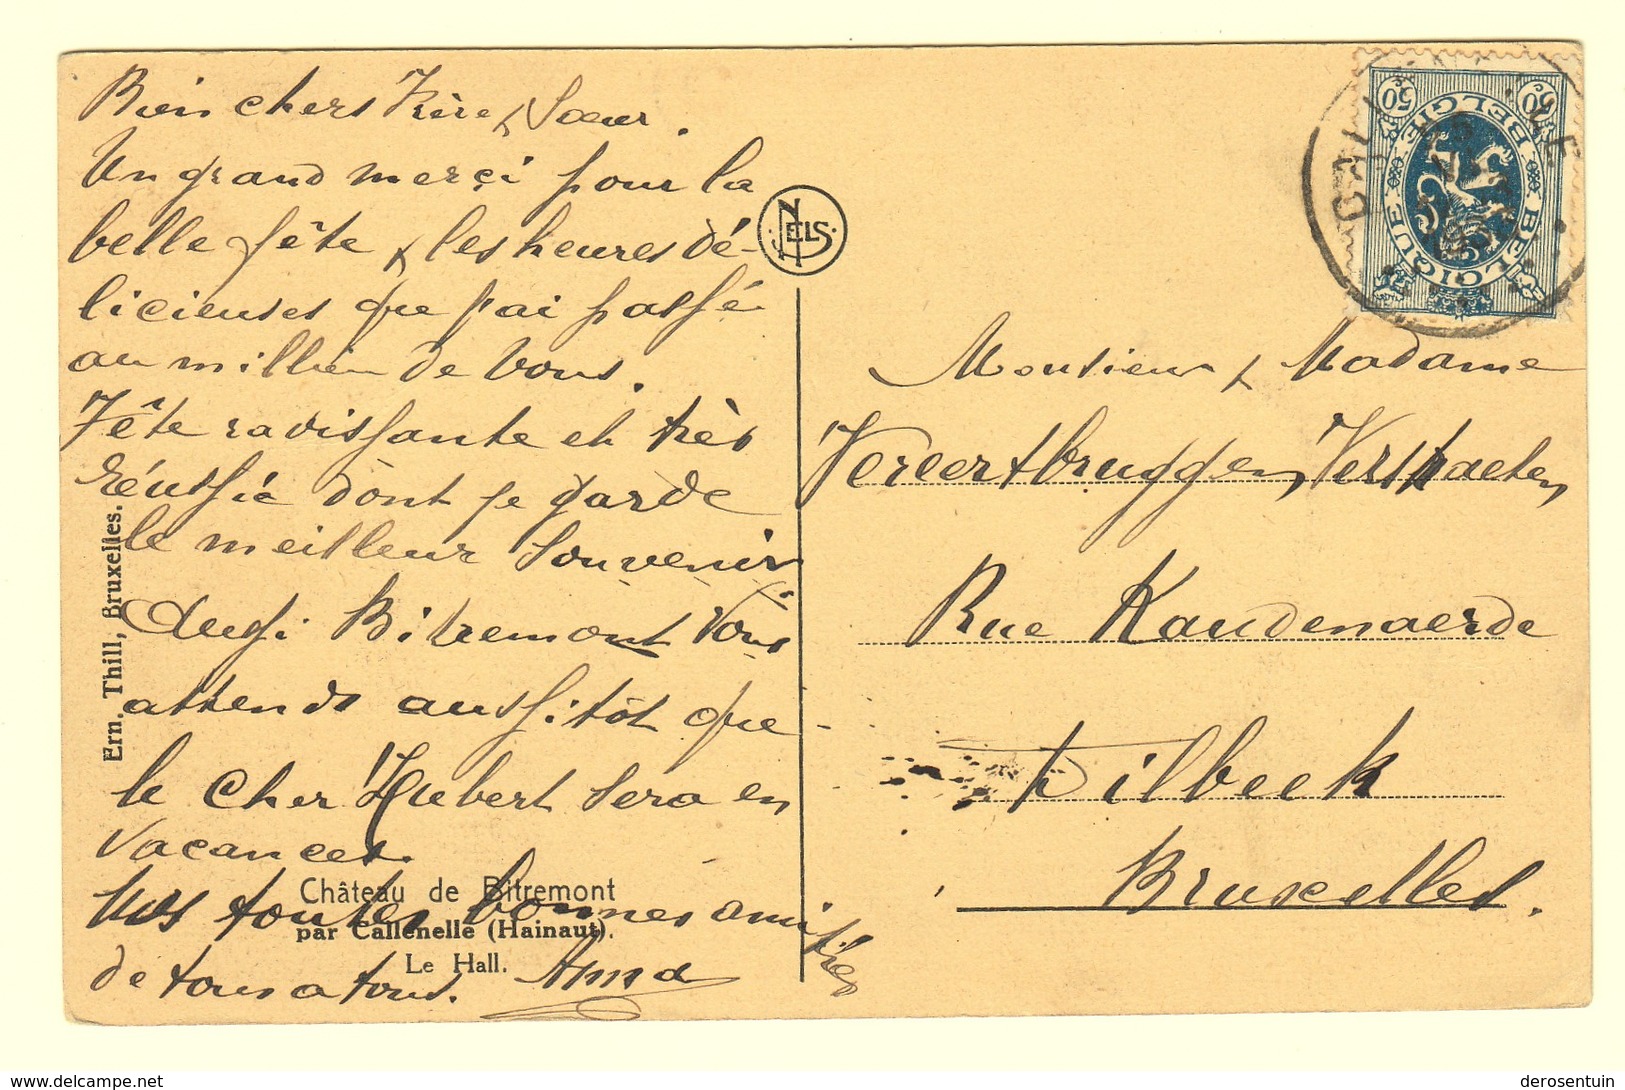 Bien chers Frère & Sœur.
Un grand merçi pour la
belle fête & les heures dé-
licieuses que j'ai passée
au millien de Vous.
Fête ravissante et très
réussie dont je garde
le meilleur souvenir.
Aussi Bitremont Vous
attends aussitôt que
le Cher Hubert sera en
vacances.
toutes bonnes amitiés
de tous a tous.
NELS
Ern. Thill, Bruxelles.
Château de Bitremont
par Callenelle (Hainaut).
Le Hall.
BELGIQUE BELGIE
50c 50c
Monsieur & Madame
Vereertbruggen Verstraeten
Rue Kaudenaerde
Dilbeek
Bruxelles.
derosentuin